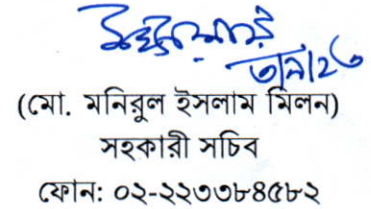 (মো. মনিরুল ইসলাম মিলন)
সহকারী সচিব
ফোন: ০২-২২৩৩৮৪৫৮২